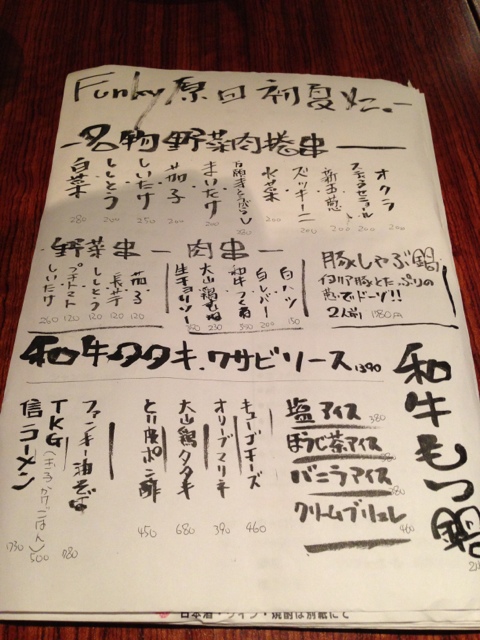 Funky原田 初夏メニュー
名物 野菜肉捲串
オクラ 200
ズッキーニ 200
水菜 200
万願寺とうがらし
まいたけ 200
茄子 200
しいたけ 250
ししとう 200
白菜 280
野菜串
茄子 120
長芋 120
ししとう 120
プチトマト 120
しいたけ 240
肉串
白ハツ 150
白レバー 200
和牛つくね
大山鶏もも 230
生チョリソー
豚しゃぶ鍋
イタリア豚とたっぷりの
葱でドーゾ!!
2人前 1780円
和牛タタキ.ワサビソース 1390
和牛もつ鍋
塩アイス 380
ほうじ茶アイス
バニラアイス
クリームブリュレ 460
キューブチーズ 460
オリーブマリネ 390
大山鶏タタキ 680
とり皮ポン酢 450
ファンキー油そば 780
TKG(玉子かけごはん) 500
信コーメン
日本酒・ワイン・焼酎は別紙にて